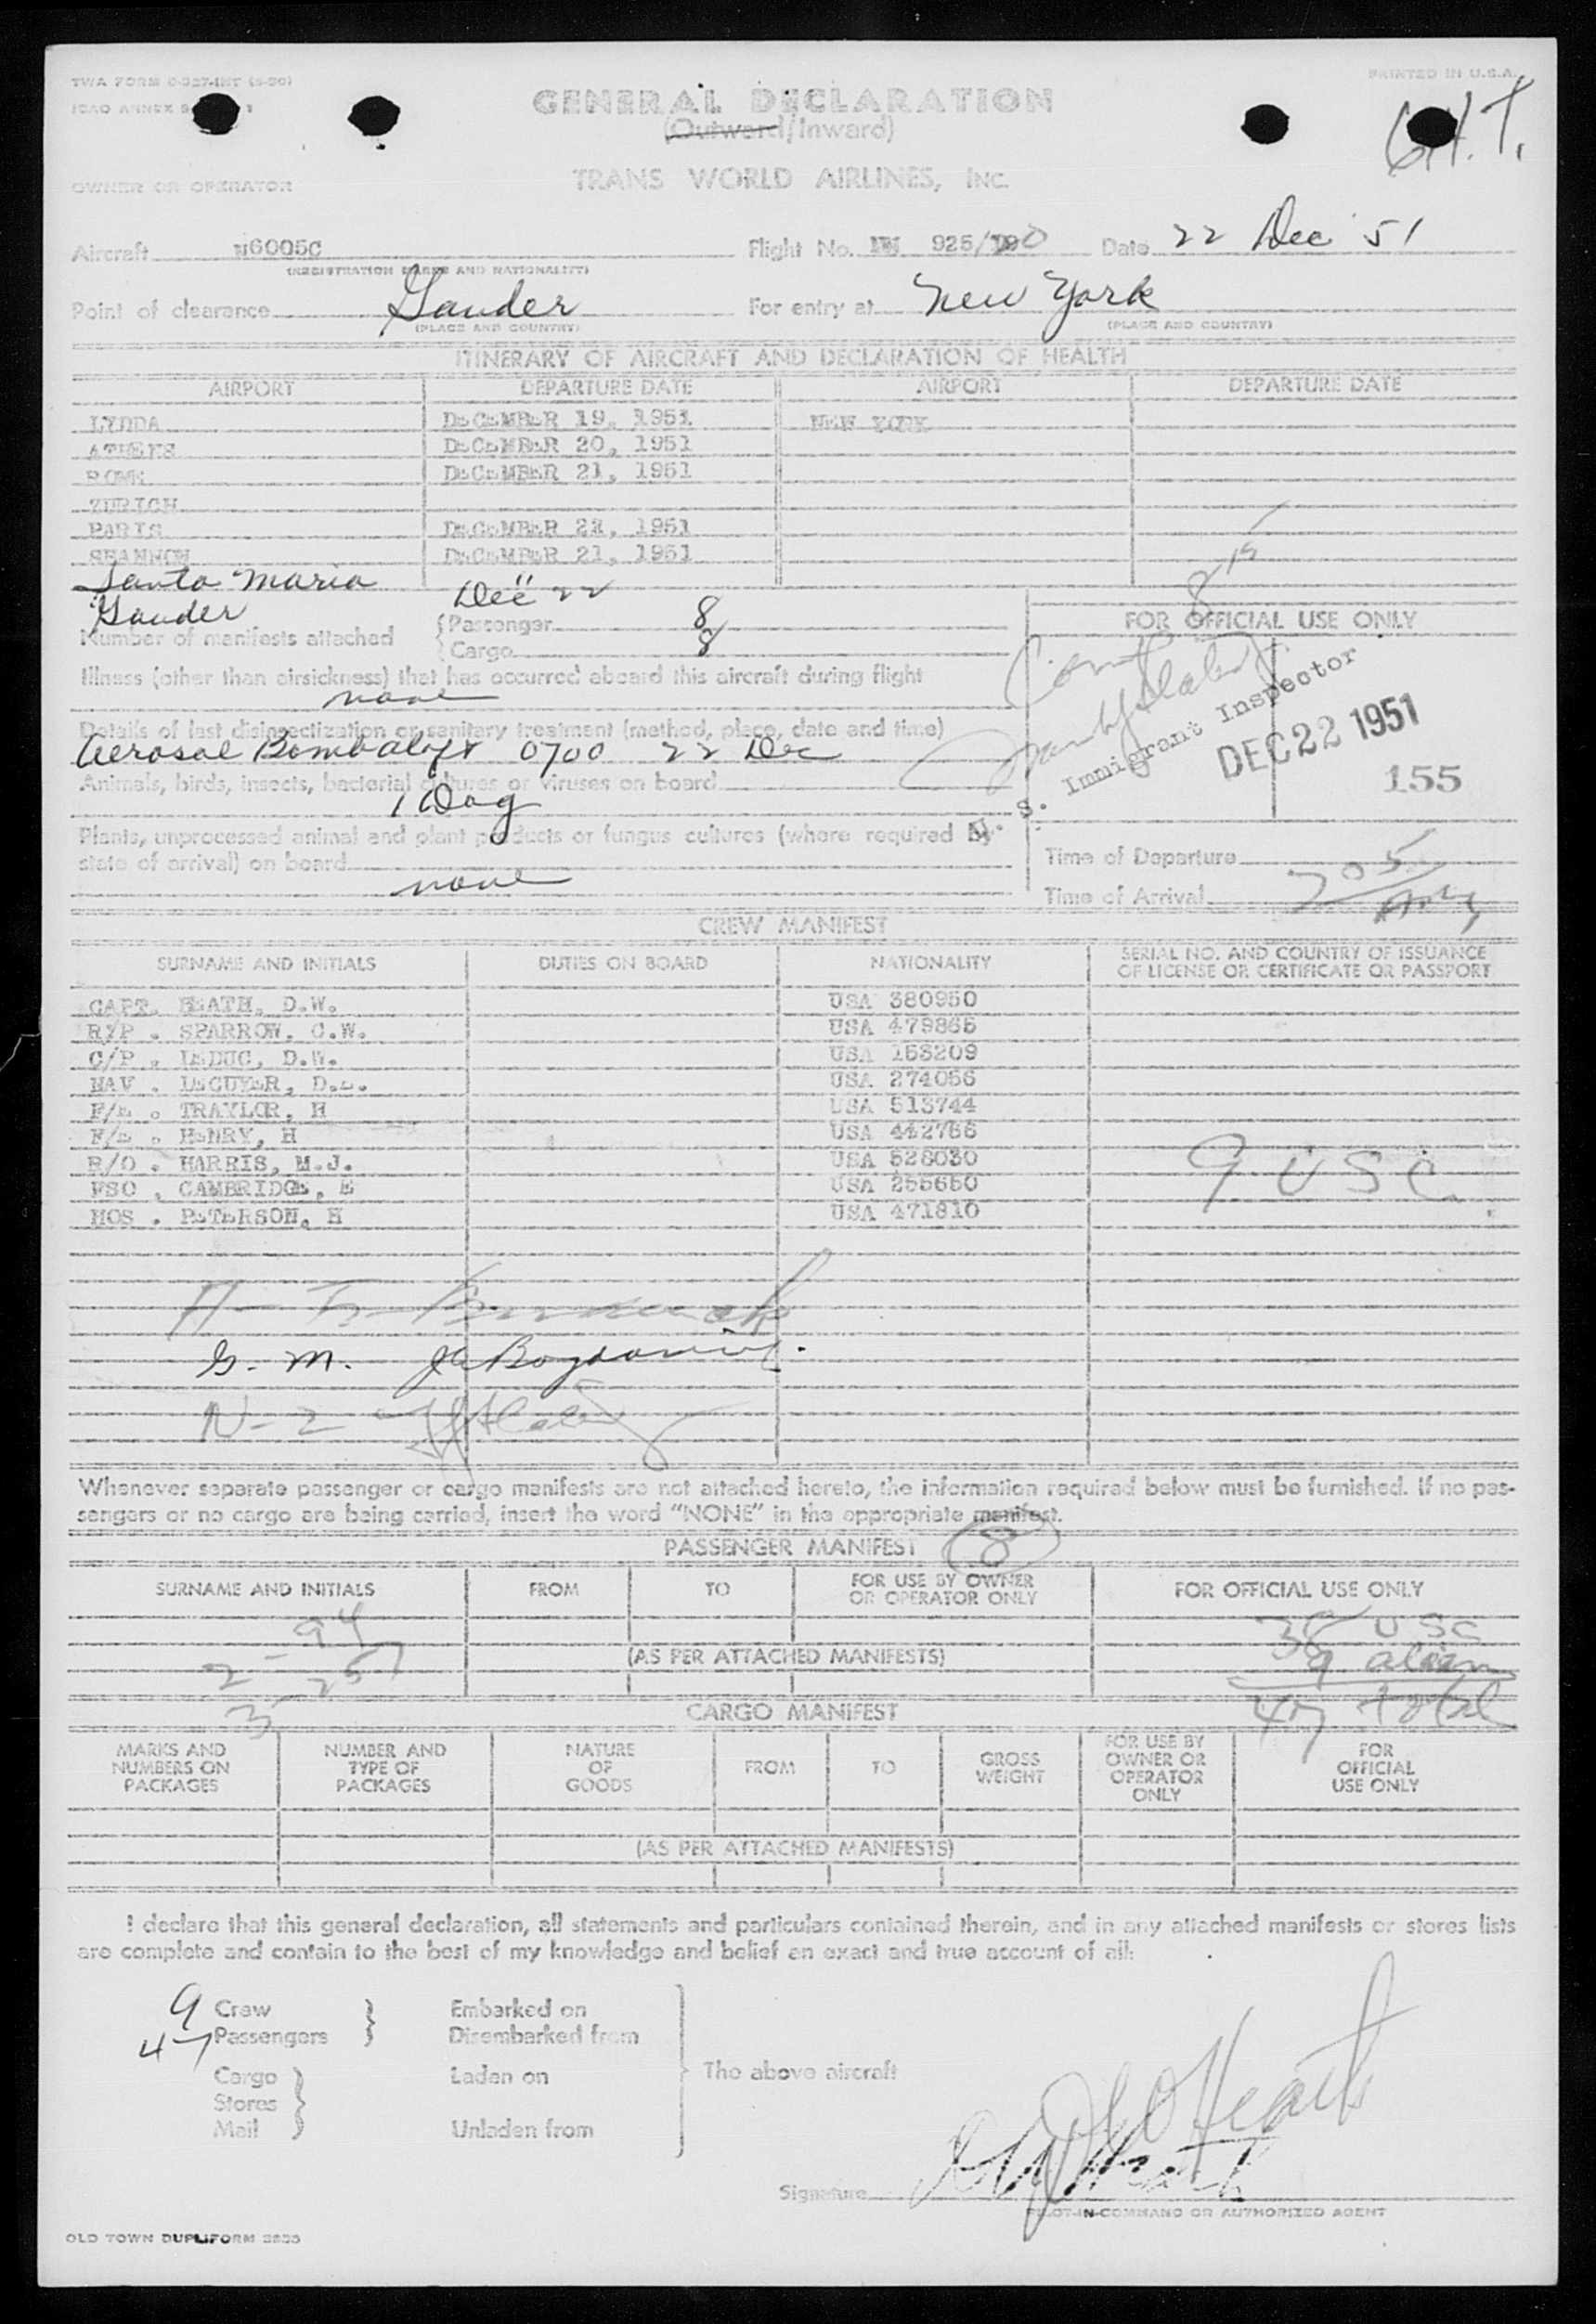 TWA FORM
PRINTED IN U.S.A.
ICAO ANNEX 9
GENERAL DECLARATION
(Outward/Inward)
G.H.T.
OWNER OR OPERATOR
TRANS WORLD AIRLINES, INC.
Aircraft N6005C Flight No. 925/ Date 22 Dec 51
(REGISTRATION MARKS AND NATIONALITY)
Point of clearance Gander For entry at New York
(PLACE AND COUNTRY) (PLACE AND COUNTRY)
ITINERARY OF AIRCRAFT AND DECLARATION OF HEALTH
AIRPORT DEPARTURE DATE AIRPORT DEPARTURE DATE
LYDDA DECEMBER 19, 1951 NEW YORK
ATHENS DECEMBER 20, 1951
ROME DECEMBER 21, 1951
ZURICH
PARIS DECEMBER 22, 1951
SHANNON DECEMBER 21, 1951
Santa Maria
Gander Dec 22
Number of manifests attached Passenger 8
Cargo 8
FOR OFFICIAL USE ONLY
Illness (other than airsickness) that has occurred aboard this aircraft during flight
none
Details of last disinsectization or sanitary treatment (method, place, date and time)
Aerosol Bomb aloft 0700 22 Dec
U. S. Immigrant Inspector
DEC 22 1951
155
Animals, birds, insects, bacterial cultures or viruses on board
1 Dog
Plants, unprocessed animal and plant products or fungus cultures (where required by
state of arrival) on board
none
Time of Departure
Time of Arrival 705
CREW MANIFEST
SURNAME AND INITIALS DUTIES ON BOARD NATIONALITY SERIAL NO. AND COUNTRY OF ISSUANCE OF LICENSE OR CERTIFICATE OR PASSPORT
CAPT. HEATH, D.W. USA 380950
R/P . SPARROW, C.W. USA 479865
C/P . LEDUC, D.W. USA 153209
NAV . LECUYER, D.E. USA 274056
F/E . TRAYLOR, H USA 513744
F/E . HENRY, H USA 442766
R/O . HARRIS, M.J. USA 528030
FSO . CAMBRIDGE, E USA 255650
HOS . PETERSON, H USA 471810
9 USC
G. M.
N-2
Whenever separate passenger or cargo manifests are not attached hereto, the information required below must be furnished. If no pas-
sengers or no cargo are being carried, insert the word "NONE" in the appropriate manifest.
PASSENGER MANIFEST 8
SURNAME AND INITIALS FROM TO FOR USE BY OWNER OR OPERATOR ONLY FOR OFFICIAL USE ONLY
94 38 USC
(AS PER ATTACHED MANIFESTS)
2 - 257 9 alien
3 47 total
CARGO MANIFEST
MARKS AND NUMBERS ON PACKAGES NUMBER AND TYPE OF PACKAGES NATURE OF GOODS FROM TO GROSS WEIGHT FOR USE BY OWNER OR OPERATOR ONLY FOR OFFICIAL USE ONLY
(AS PER ATTACHED MANIFESTS)
I declare that this general declaration, all statements and particulars contained therein, and in any attached manifests or stores lists
are complete and contain to the best of my knowledge and belief an exact and true account of all:
9 Crew Embarked on
47 Passengers Disembarked from
Cargo Laden on The above aircraft
Stores
Mail Unladen from
Signature D W Heath
PILOT-IN-COMMAND OR AUTHORIZED AGENT
OLD TOWN DUPLIFORM